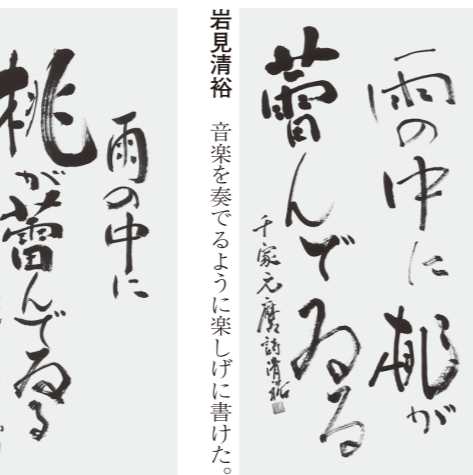 雨の中に
桃が
蕾んで
ゐる
千家元麿詩清裕
岩見清裕　音楽を奏でるように楽しげに書けた。
雨の中に
桃が
蕾んでゐる